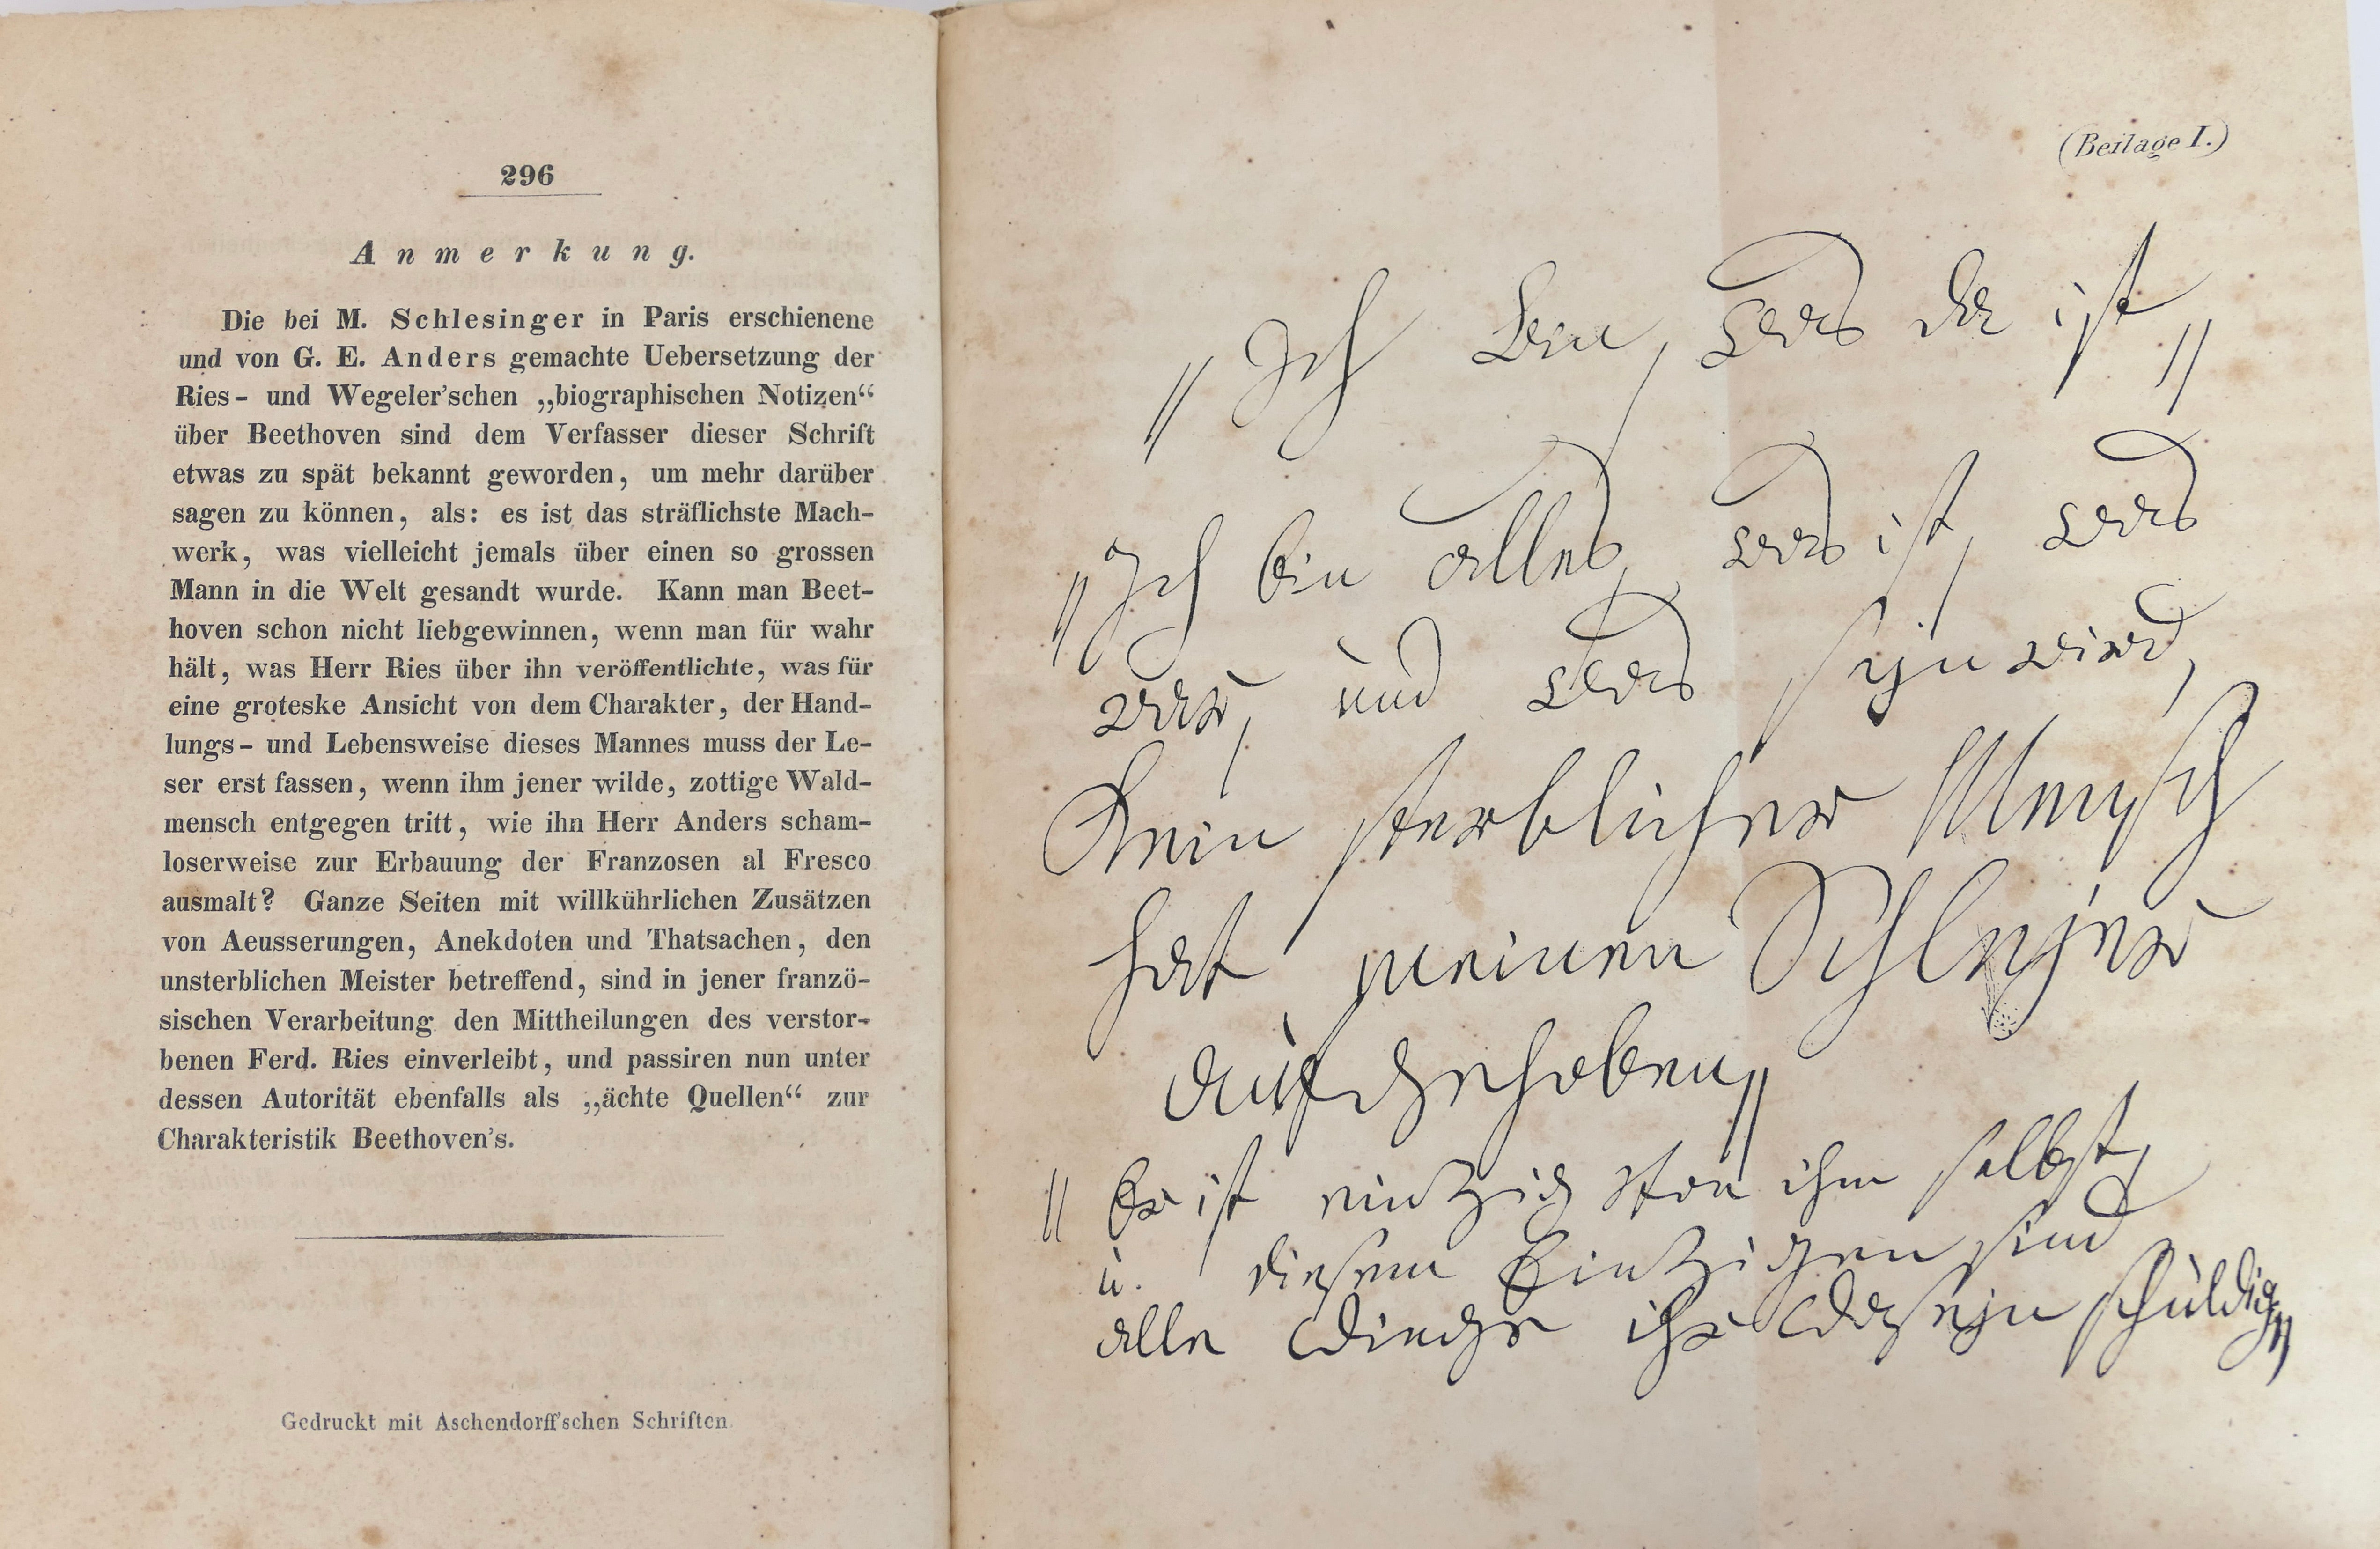 296
Anmerkung.
Die bei M. Schlesinger in Paris erschienene
und von G. E. Anders gemachte Uebersetzung der
Ries- und Wegeler'schen „biographischen Notizen“
über Beethoven sind dem Verfasser dieser Schrift
etwas zu spät bekannt geworden, um mehr darüber
sagen zu können, als: es ist das sträflichste Mach-
werk, was vielleicht jemals über einen so grossen
Mann in die Welt gesandt wurde. Kann man Beet-
hoven schon nicht liebgewinnen, wenn man für wahr
hält, was Herr Ries über ihn veröffentlichte, was für
eine groteske Ansicht von dem Charakter, der Hand-
lungs- und Lebensweise dieses Mannes muss der Le-
ser erst fassen, wenn ihm jener wilde, zottige Wald-
mensch entgegen tritt, wie ihn Herr Anders scham-
loserweise zur Erbauung der Franzosen al Fresco
ausmalt? Ganze Seiten mit willkührlichen Zusätzen
von Aeusserungen, Anekdoten und Thatsachen, den
unsterblichen Meister betreffend, sind in jener franzö-
sischen Verarbeitung den Mittheilungen des verstor-
benen Ferd. Ries einverleibt, und passiren nun unter
dessen Autorität ebenfalls als „ächte Quellen“ zur
Charakteristik Beethoven's.
Gedruckt mit Aschendorff'schen Schriften.
(Beilage I.)
„Ich bin, was da ist„
„Ich bin alles, was ist, was
war, und was seyn wird,
Kein sterblicher Mensch
hat meinen Schleyer
aufgehoben„
„Er ist eintzig von ihm selbst,
u. diesem Eintzigen sind
alle Dinge ihr Daseyn schuldig„